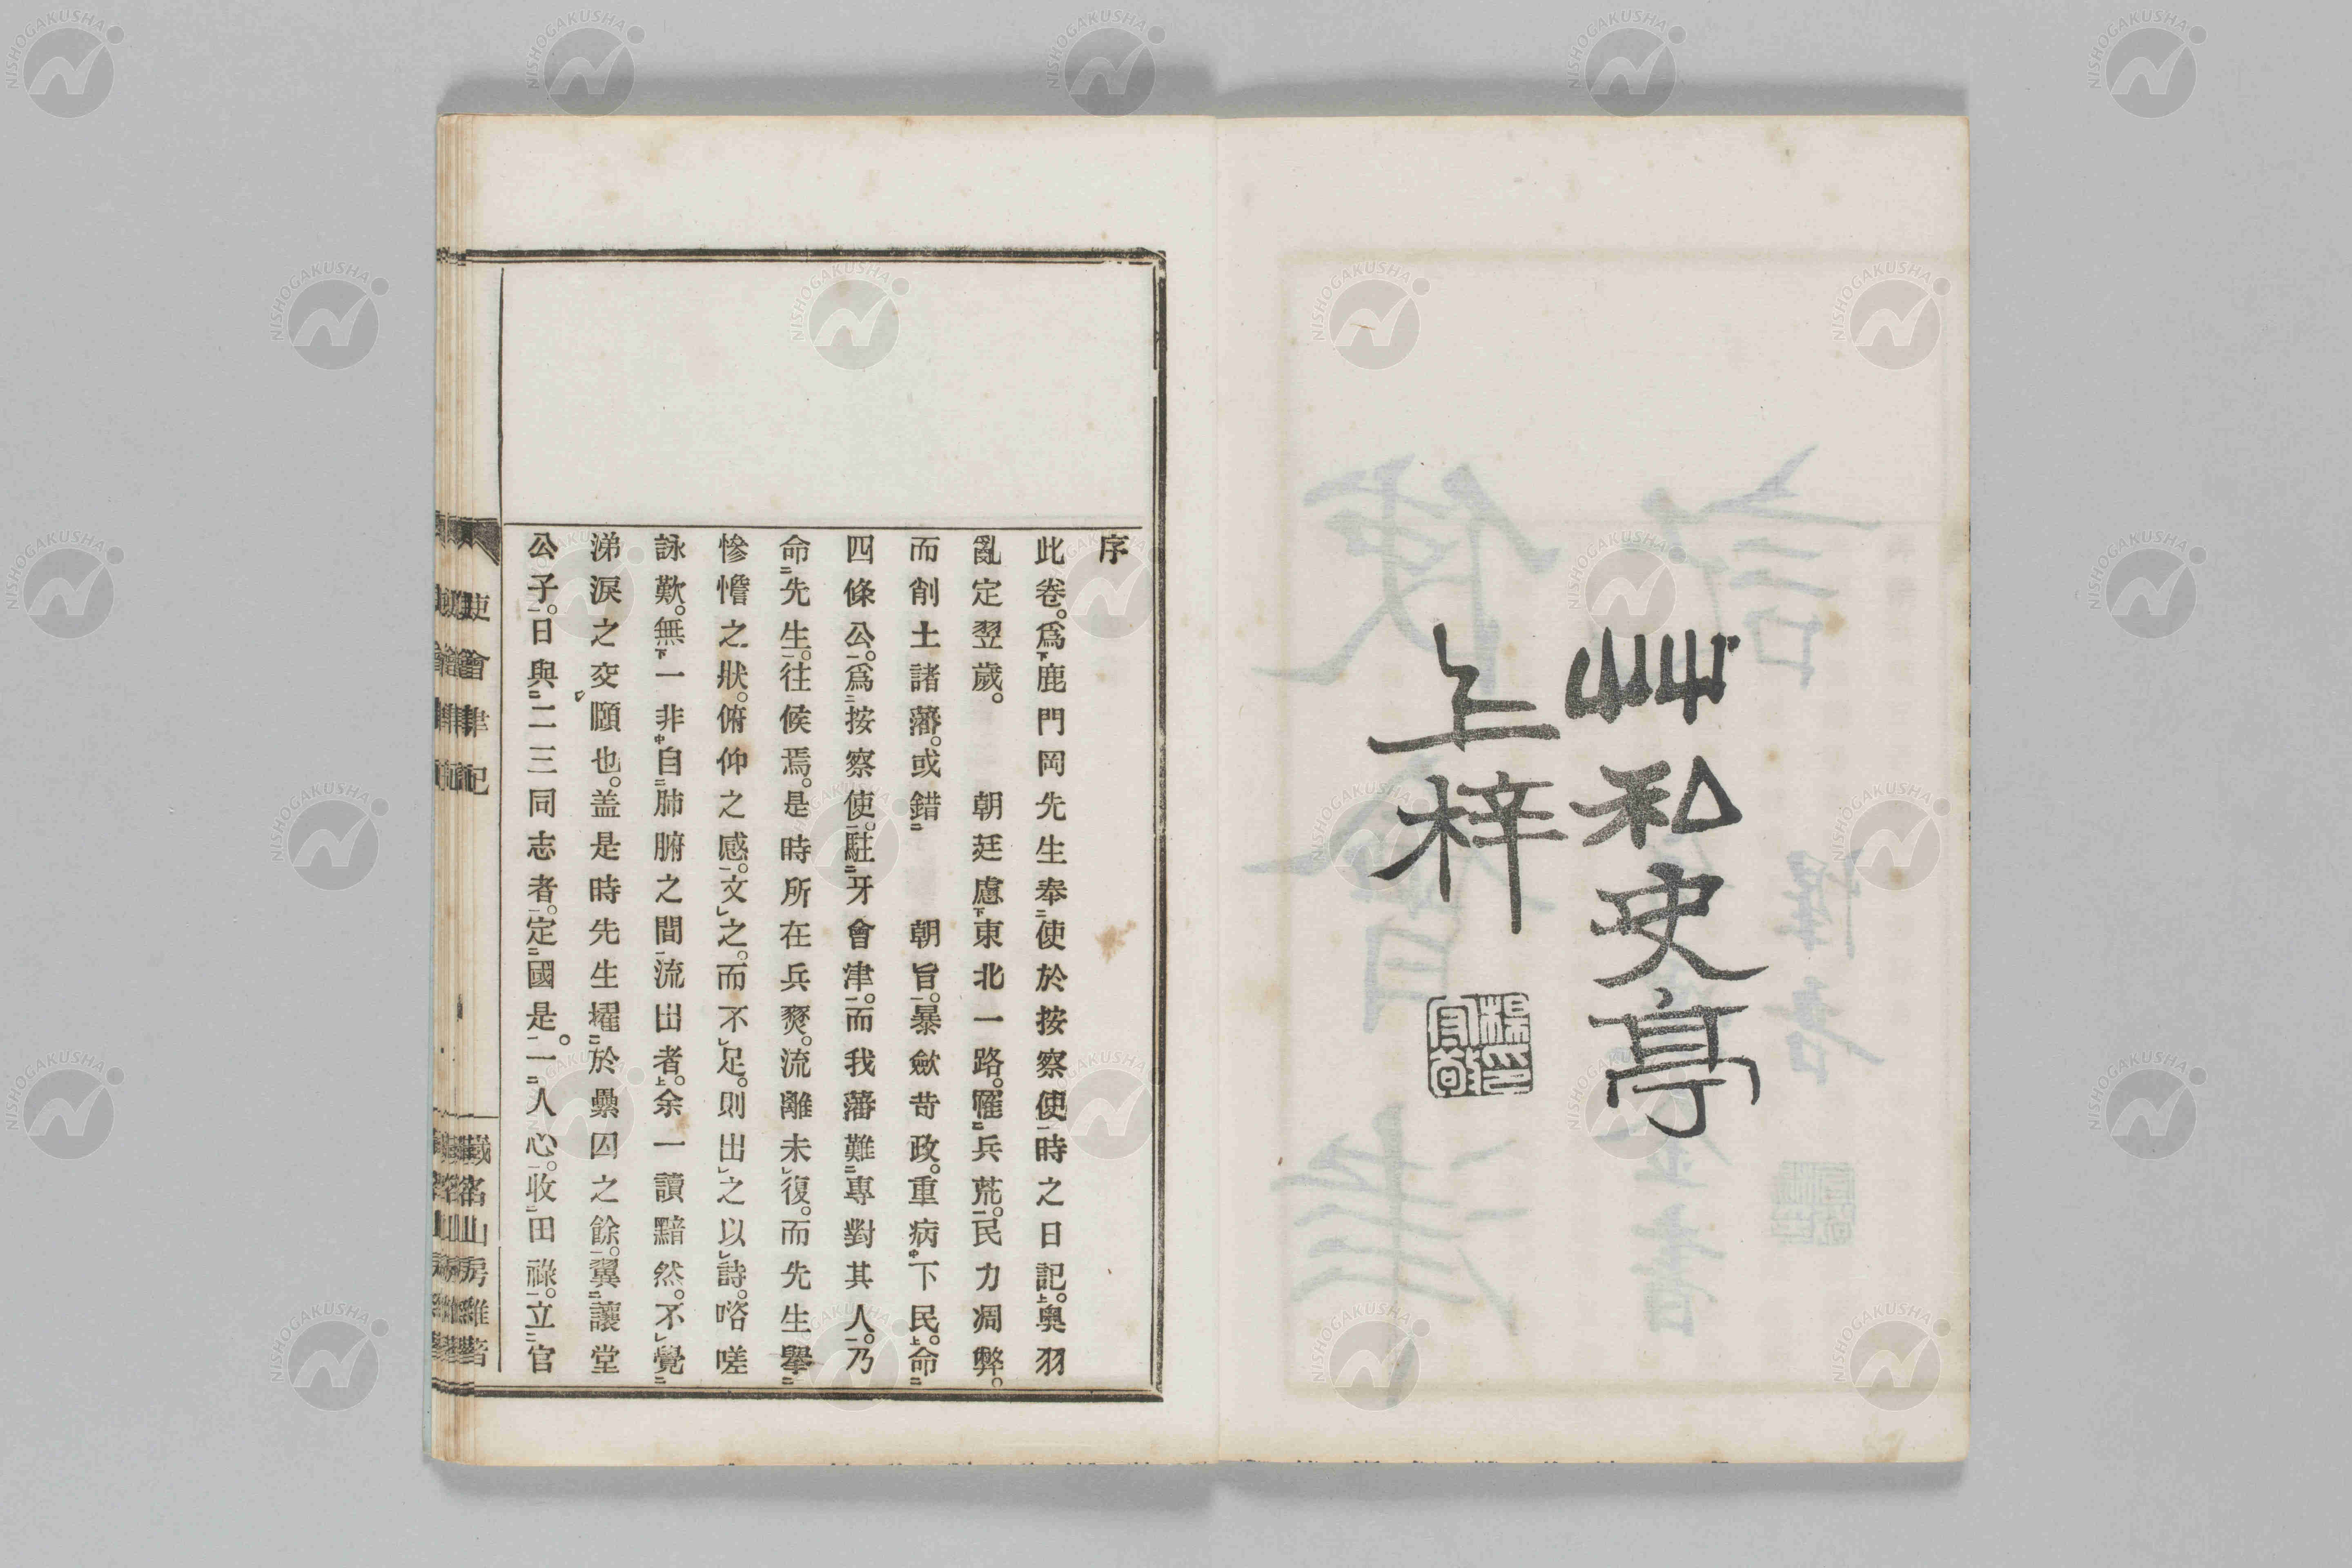 艸私史亭
上梓
序
此卷。爲鹿門岡先生奉使於按察使時之日記。奥羽
亂定翌歲。朝廷慮東北一路。罹兵荒。民力凋弊。
而削土諸藩。或錯朝旨。暴歛苛政。重病下民。命
四條公。爲按察使。駐牙會津。而我藩難專對其人。乃
命先生。往候焉。是時所在兵燹。流離未復。而先生擧
慘憺之狀。俯仰之感。文之。而不足。則出之以詩。咨嗟
詠歎。無一非自肺腑之間流出者。余一讀黯然。不覺
涕淚之交頤也。盖是時先生擢於纍囚之餘。翼讓堂
公子。日與二三同志者。定國是。一人心。收田祿。立官
使會津記
藏名山房雜著
NISHOGAKUSHA